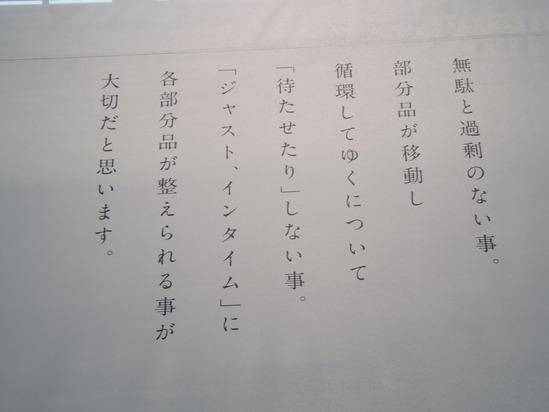 無駄と過剰のない事。
部分品が移動し
循環してゆくについて
「待たせたり」しない事。
「ジャスト、インタイム」に
各部分品が整えられる事が
大切だと思います。